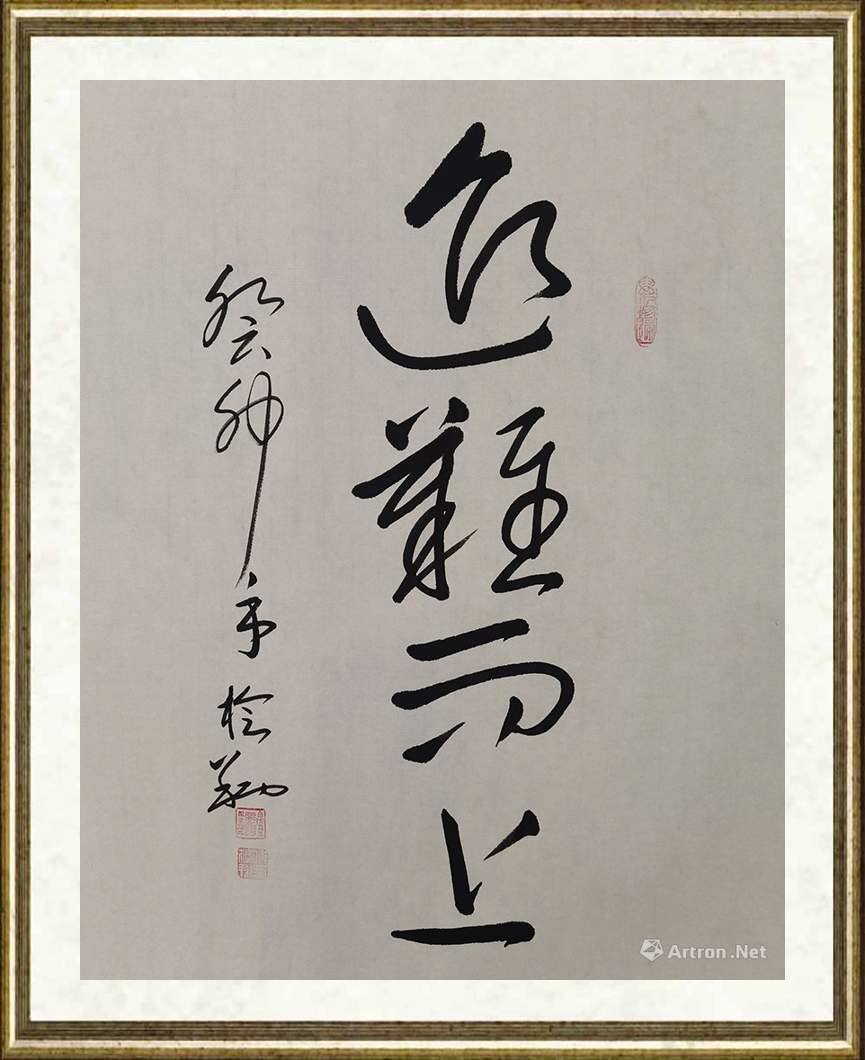 迎難而上
癸卯年
Artron.Net